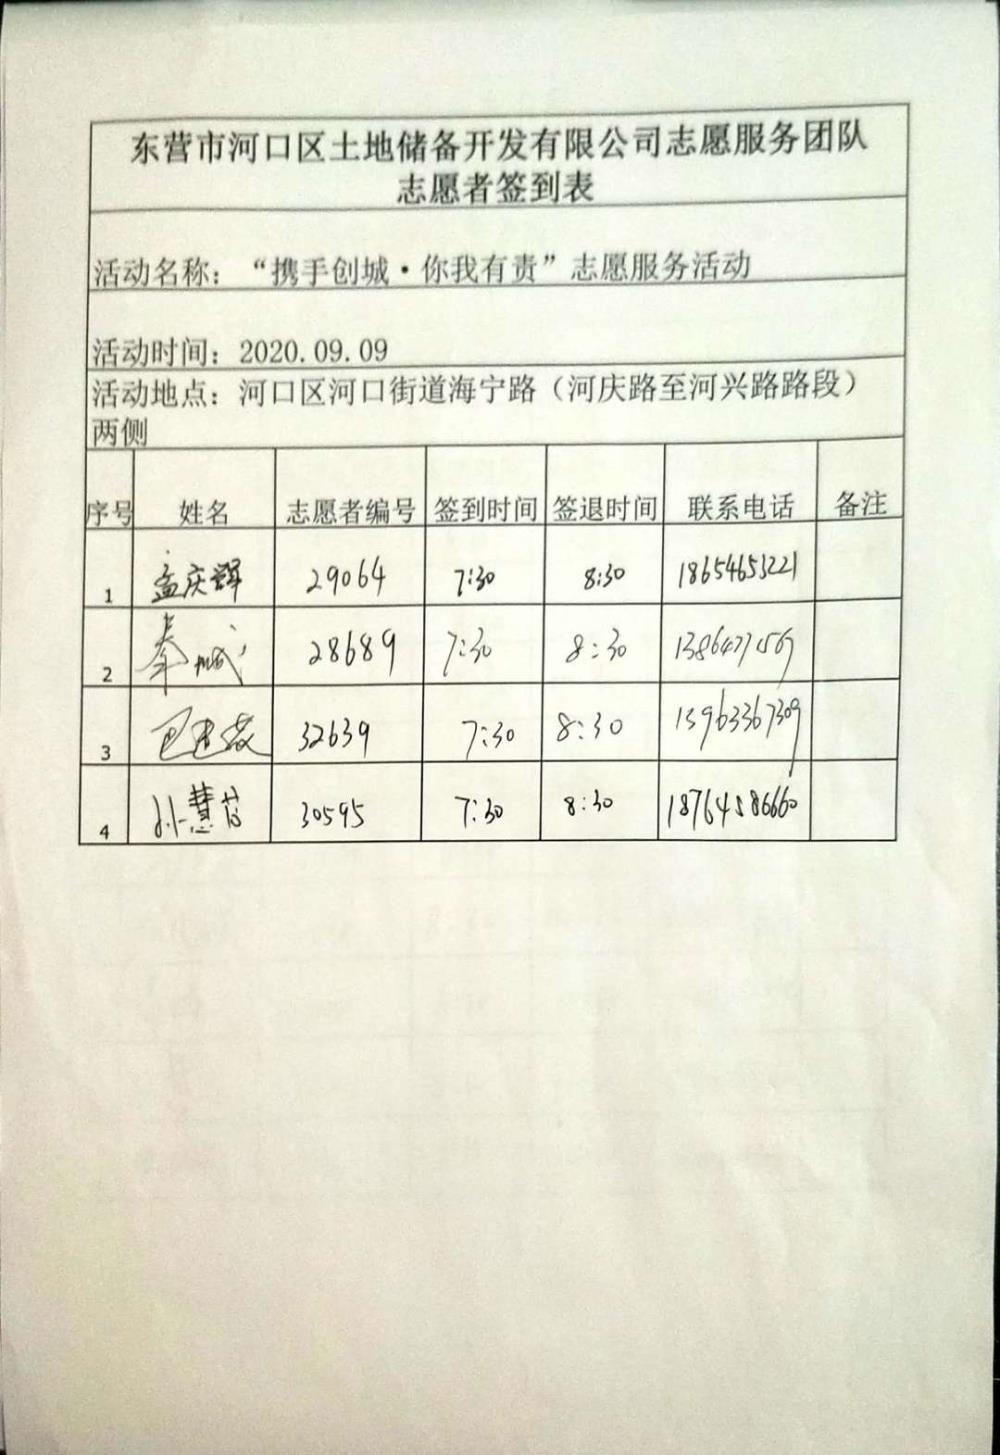 东营市河口区土地储备开发有限公司志愿服务团队
志愿者签到表
活动名称：“携手创城·你我有责”志愿服务活动
活动时间：2020.09.09
活动地点：河口区河口街道海宁路（河庆路至河兴路路段）
两侧
序号 姓名 志愿者编号 签到时间 签退时间 联系电话 备注
1 孟庆辉 29064 7:30 8:30 18654653221
2 秦城 28689 7:30 8:30
3 32639 7:30 8:30 13963367309
4 孙慧芳 30595 7:30 8:30 18764586660